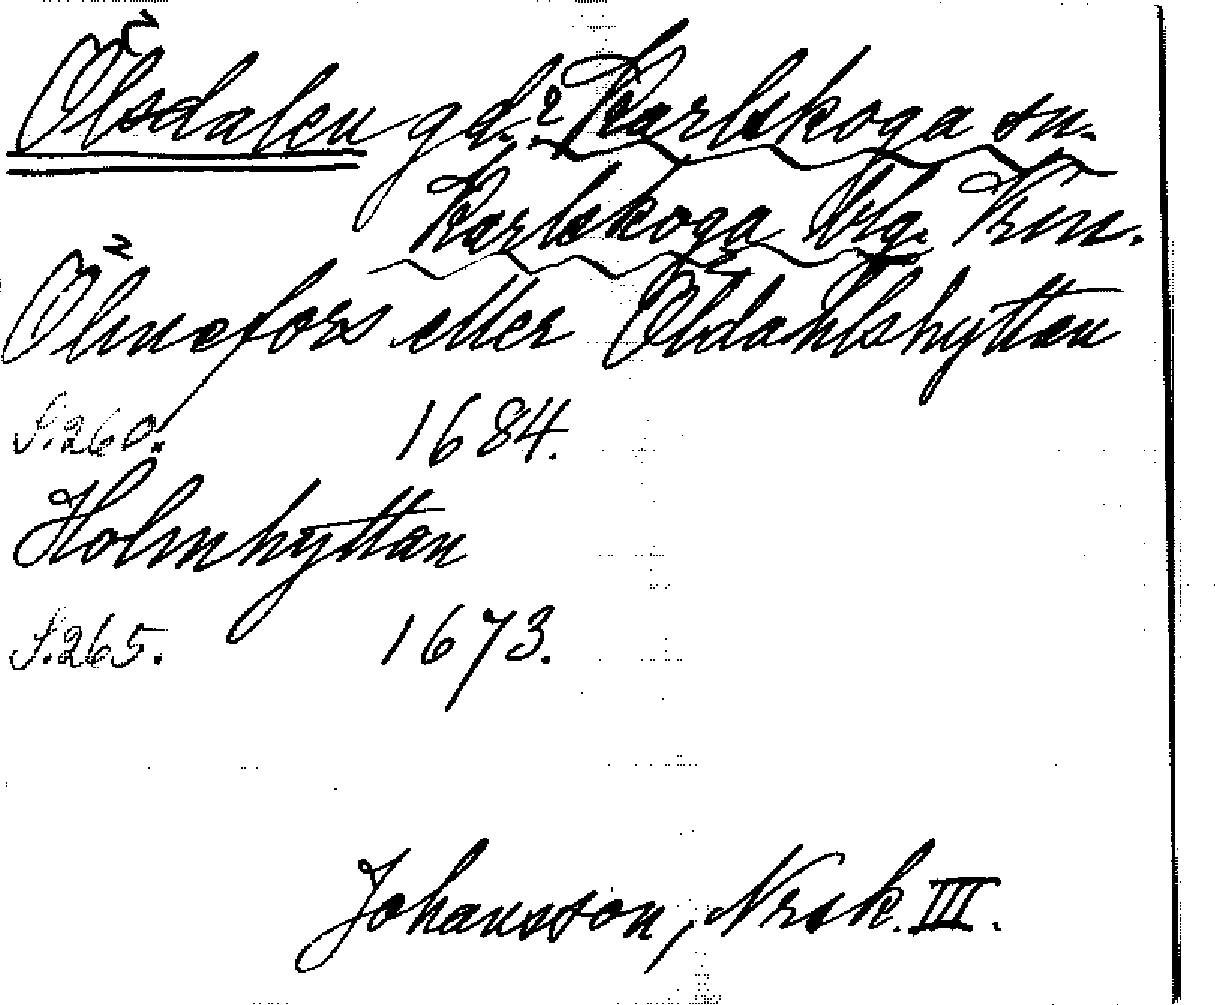 Ölsdalen gd.? Karlskoga sn.
Karlskoga brg. Krm.
Ölmefors eller Öldahlshyttan
S.260. 1684.
Holmhyttan
S.265. 1673.
Johansson, Nrsk. III.